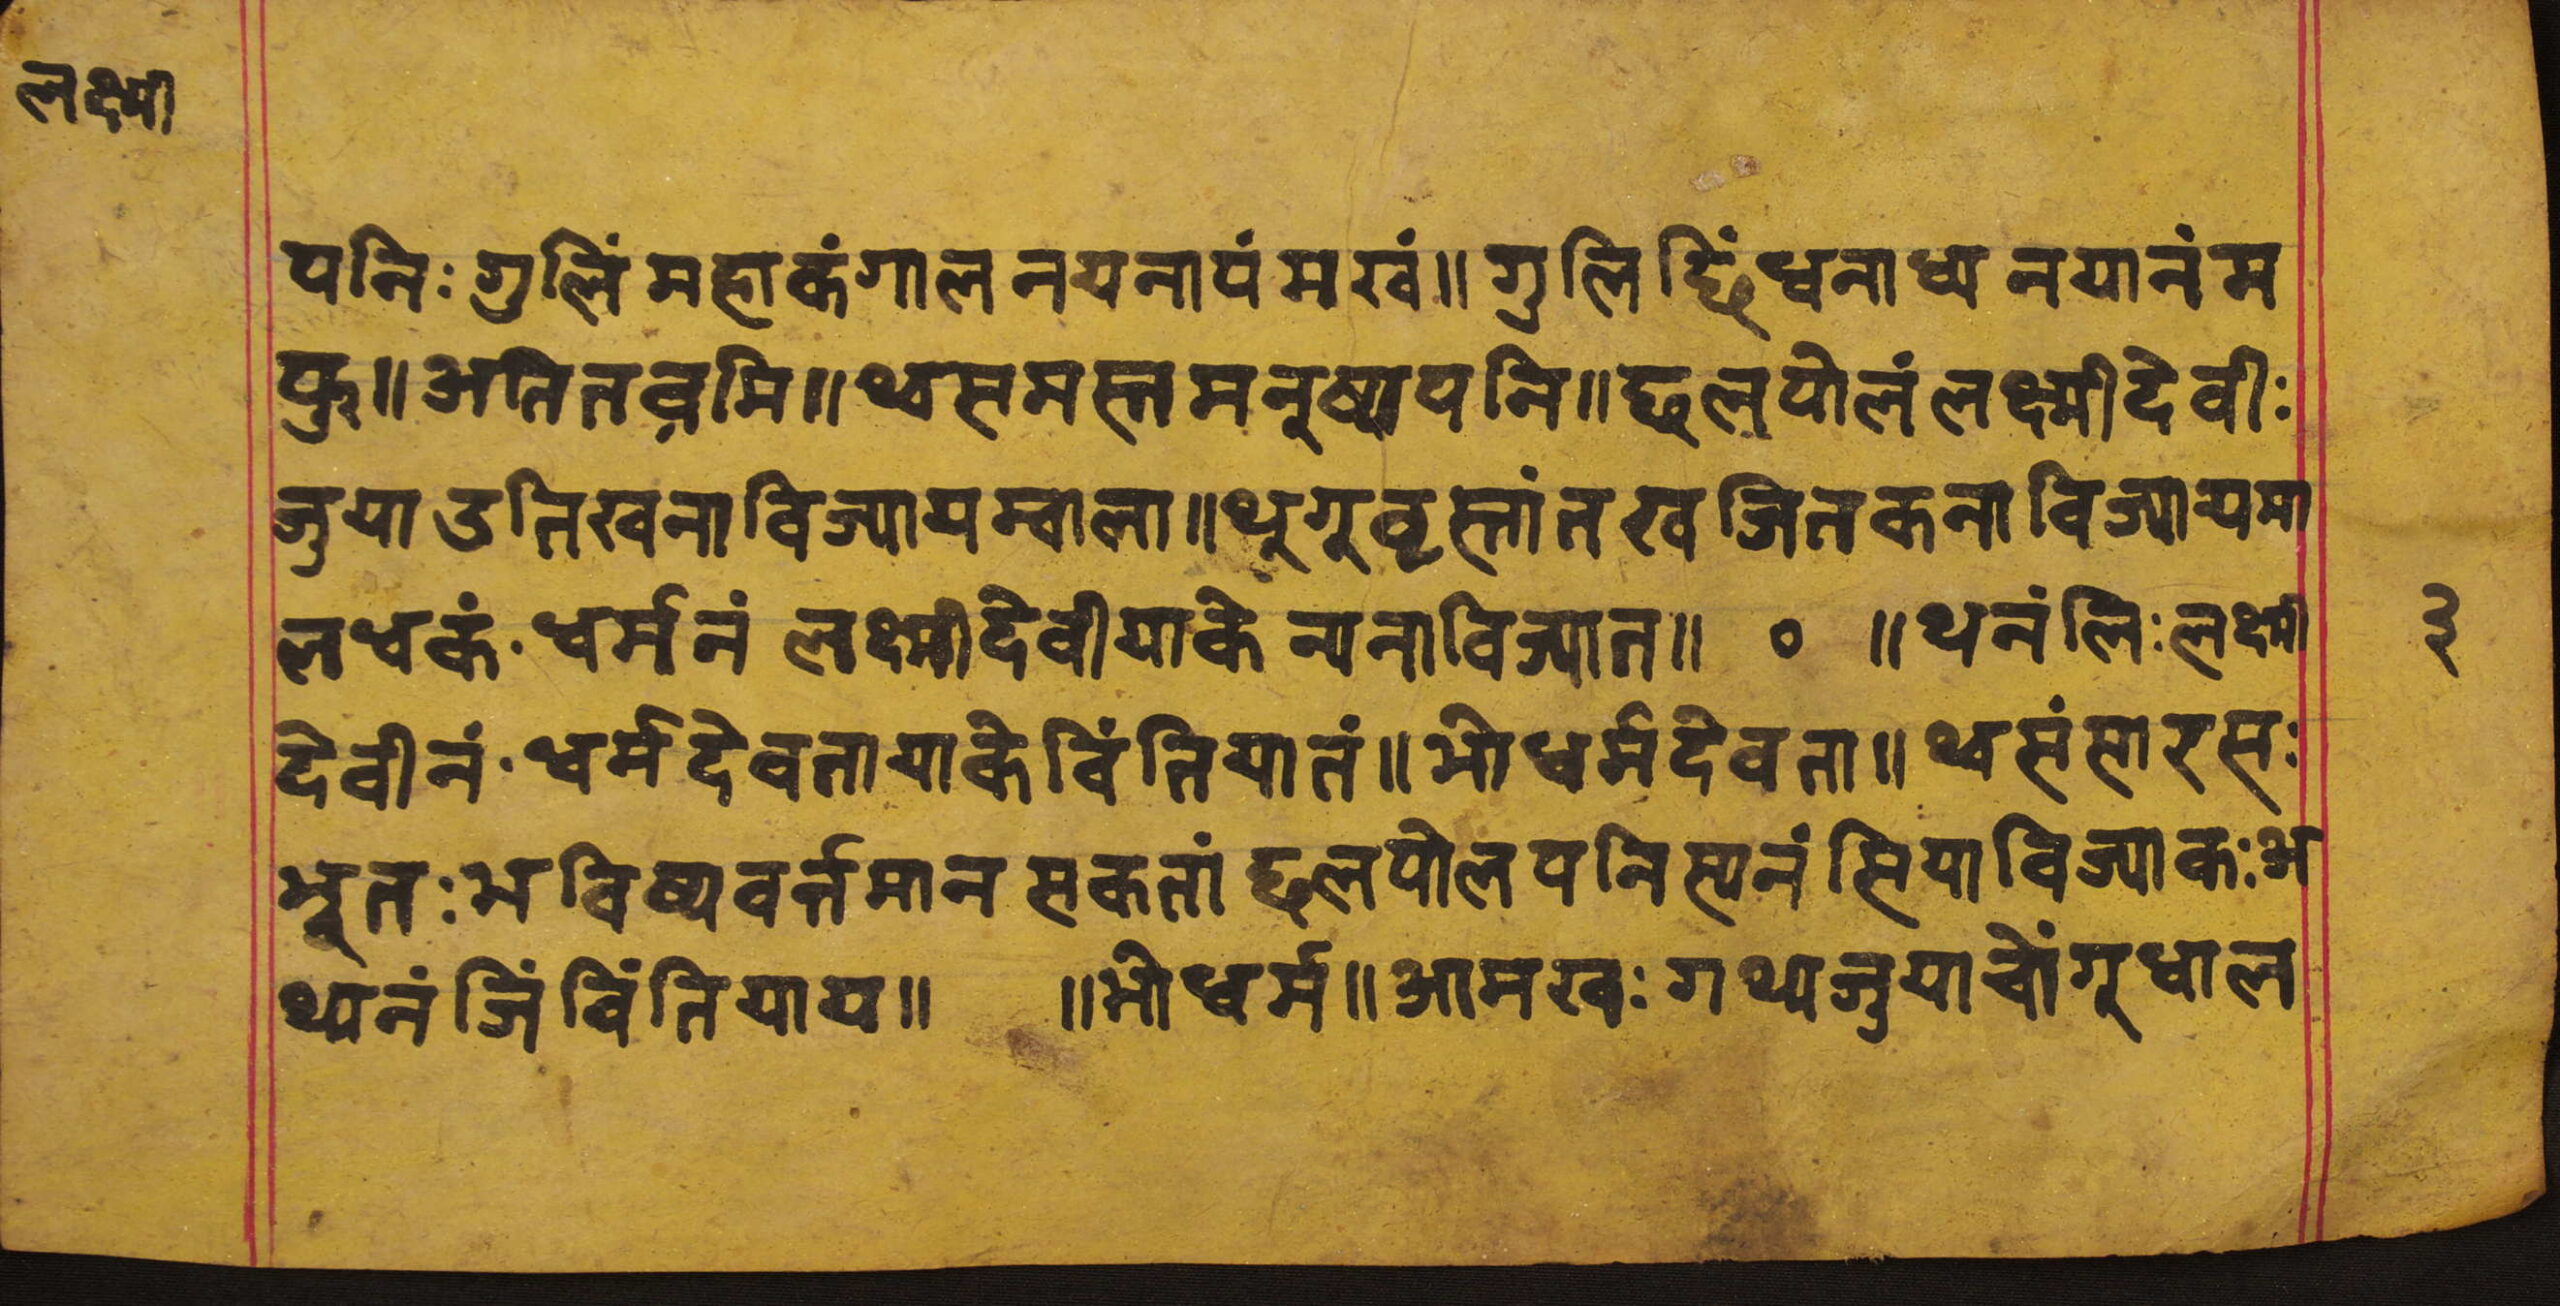 लक्ष्मी
पनिः गुलिं महाकंगाल नयनापं मखं॥ गुलि छिं ध्वनाध्य नयानं म
फु॥ अतितव्रमि॥ थ्वसमस्त मनूष्यपनि॥ छलपोलं लक्ष्मीदेवीः
जुया उतिखना विज्यायम्वाला॥ थूगू वृस्तांत खजित कना विज्यायमा
लधकं· धर्मनं लक्ष्मीदेवीयाके न्यनाविज्यात॥ ० ॥ थनंलिः लक्ष्मी
देवीनं· धर्मदेवतायाके विंतियातं॥ भो धर्मदेवता॥ थ्वसंसारसः
भूतः भविष्यवर्त्तमान सकतां छलपोलपनिस्यनं सियाविज्याकः अ
थ्यनं जिं विंतियाय॥ ॥ भो धर्म॥ आमखः गथ्यजुयाचोंगू धाल
३